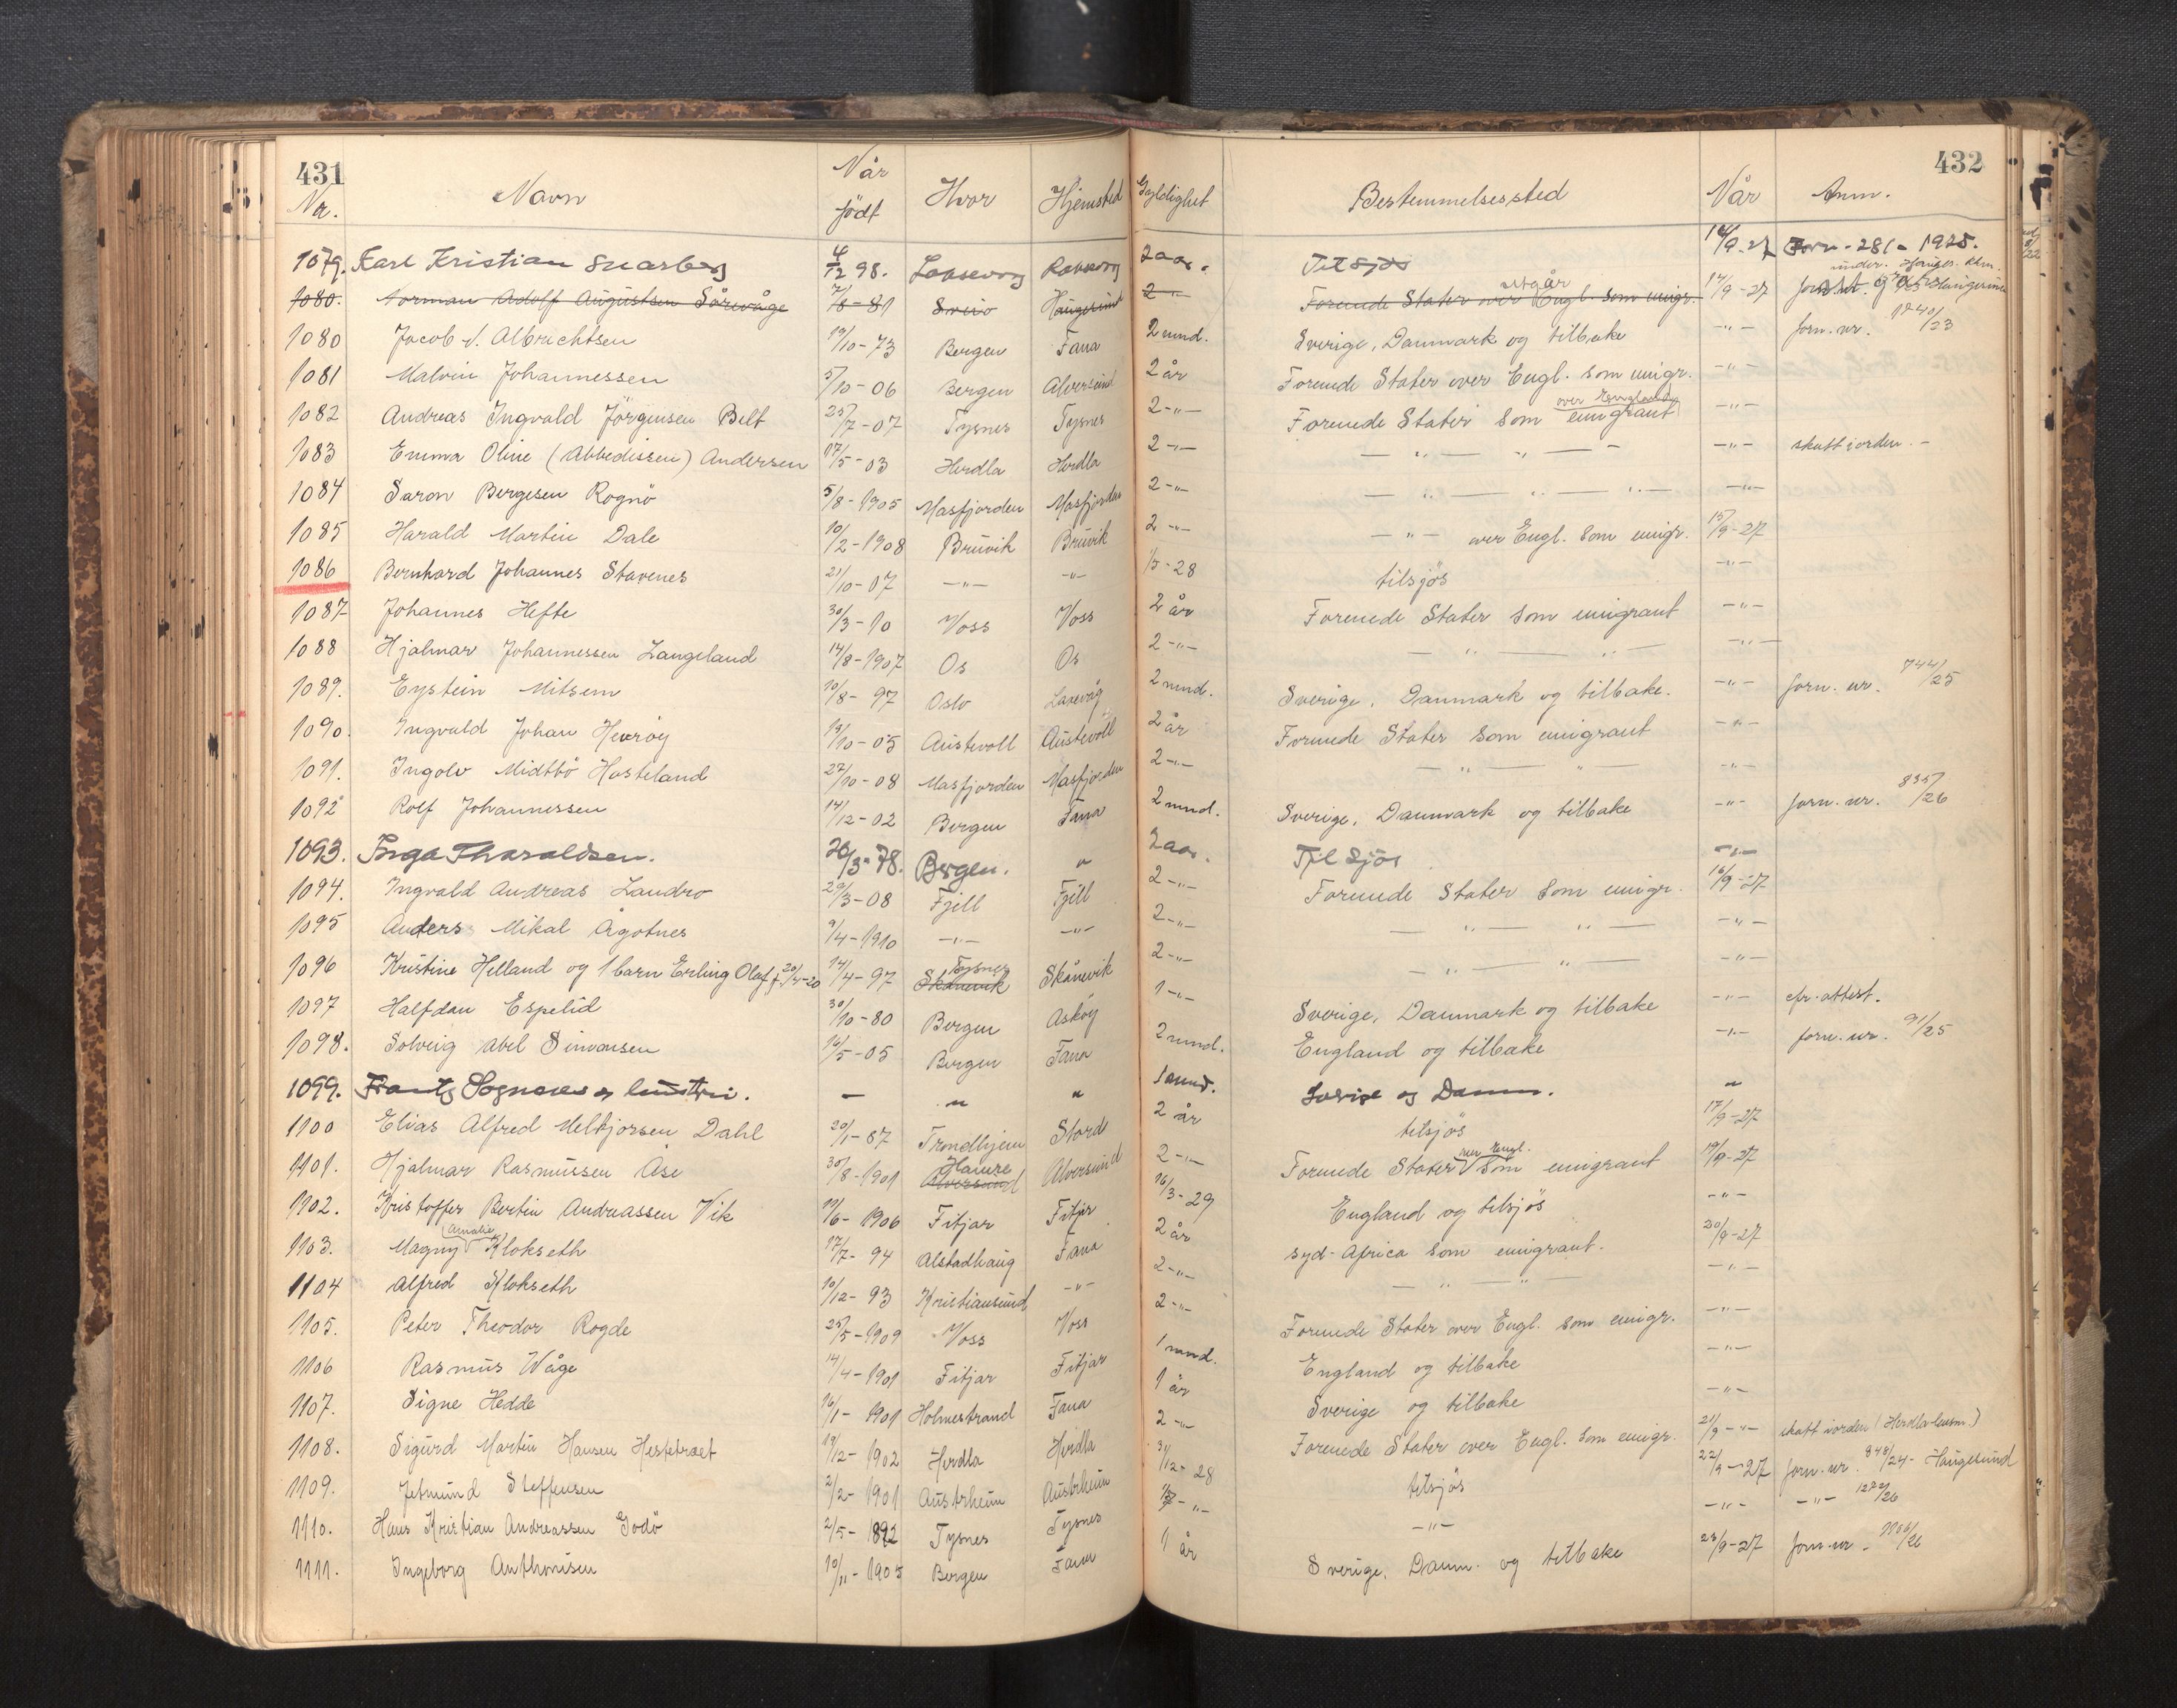 431
432
Nr. Navn Når født Hvor Hjemsted Gyldighet Bestemmelsessted Når Anm.
1079. Karl Kristian Snarberg 4/12 98. Laksevog Laksevog 2 aar. Til sjøs 14/9-27 Forn - 281 - 1925.
1080. Norman Adolf Augustsen Sörevåge 7/8-81 Sveio Haugesund 2-"- Forenede Stater over Engl. som emigr. utgår 14/9-27
1080 Jacob J. Albrechtsen 19/10-73 Bergen Fana 2 mnd. Sverige, Danmark og tilbake -"- forn. nr. 1240/23
1081 Malvin Johannessen 5/10-06 Bergen Alversund 2 år Forenede Stater over Engl. som emigr. -"-
1082 Andreas Ingvald Jörgensen Belt 25/7-07 Tysnes Tysnes 2-"- Forenede Stater som over England emigrant -"-
1083 Emma Oline (Abbedissen) Andersen 17/5-03 Herdla Herdla 2-"- -"- -"- - -"- skatt i orden. -
1084 Saron Bergesen Rognö 5/8-1905 Masfjorden Masfjorden 2-"- -"- -"- -"- -"-
1085 Harald Martin Dale 10/2-1908 Bruvik Bruvik 2-"- -"- over Engl. som emigr. 15/9-27
1086 Bernhard Johannes Stavenes 21/10-07 -"- -"- 1/5-28 tilsjös -"-
1087 Johannes Hefte 30/3-10 Voss Voss 2 år Forenede Stater som emigrant -"-
1088 Hjalmar Johannessen Langeland 14/8-1907 Os Os 2-"- -"- -"- -"-
1089. Eystein Mitsem 10/8-97 Oslo Laxevåg 2 mnd. Sverige, Danmark og tilbake. -"- forn. nr. 744/25
1090. Ingvald Johan Hevröy 13/10-05 Austevoll Austevoll 2 år Forenede Stater som emigrant -"-
1091. Ingolv Midtbö Hosteland 27/10-08 Masfjorden Masfjorden 2-"- -"- -"- -"-
1092 Rolf Johannessen 14/12-02 Bergen Fana 2 mnd. Sverige, Danmark og tilbake -"- forn. nr. 835/26
1093. Inga Tharaldsen. 26/3-78. Bergen. " 2 aar. Til Sjøs -"-
1094. Ingvald Andreas Landro 29/3-08 Fjell Fjell 2-"- Forenede Stater som emigr. 16/9-27
1095 Anders Mikal Ågotnes 9/4-1910 -"- -"- 2-"- -"- -"- -"-
1096 Kristine Helland og 1 barn Erling Olaf f. 20/4-20 14/4-97 Skånevik Tysnes Skånevik 2-"- -"- -"- -"-
1097 Halfdan Espelid 30/10-80 Bergen Askøy 1-"- Sverige, Danmark og tilbake -"- cfr. attest.
1098. Solveig Abel Simonsen 16/5-05 Bergen Fana 2 mnd. England og tilbake -"- forn. nr. 91/25
1099. Frantz Sognnæs og hustru. - " " 1 mnd. Sverige og Danm. "
1100 Elias Alfred Meltjorsen Dahl 20/1-87 Trondhjem Stord 2 år tilsjös 17/9-27
1101. Hjalmar Rasmussen Åse 30/8-1901 Alversund Hamre Alversund 2-"- Forenede Stater over Engl. som emigrant 19/9-27
1102. Kristoffer Bertin Andreassen Vik 11/6-1906 Fitjar Fitjar 16/3-29 England og tilsjös -"-
1103. Magny Amalie Klokseth 17/7-94 Alstadhaug Fana 2 år Syd-Africa som emigrant. 20/9-27
1104 Alfred Klokseth 10/12-93 Kristiansund -"- 2-"- -"- -"- -"-
1105. Peter Theodor Rogde 25/5-1909 Voss Voss 2-"- Forenede Stater over Engl. som emigr. -"-
1106 Rasmus Våge 14/4-1901 Fitjar Fitjar 1 mnd. England og tilbake -"-
1107. Signe Hedde 16/1-1901 Holmestrand Fana 1 år Sverige og tilbake -"-
1108. Sigurd Martin Hansen Hestetræet 19/12-1902 Herdla Herdla 2-"- Forenede Stater over Engl. som emigr. 21/9-"- skatt iorden (Herdla lensm.)
1109. Jetmund Steffensen 2/2-1901 Austrheim Austrheim 31/12-28 tilsjös 22/9-27 forn. nr. 848/24 - Haugesund
1110. Hans Kristian Andreassen Godö 2/5-1892 Tysnes Tysnes -"- -"- -"- 1272/26
1111. Ingeborg Anthonisen 10/11-1905 Bergen Fana 1 år Sverige, Danm. og tilbake 23/9-27 forn. nr. 1156/26